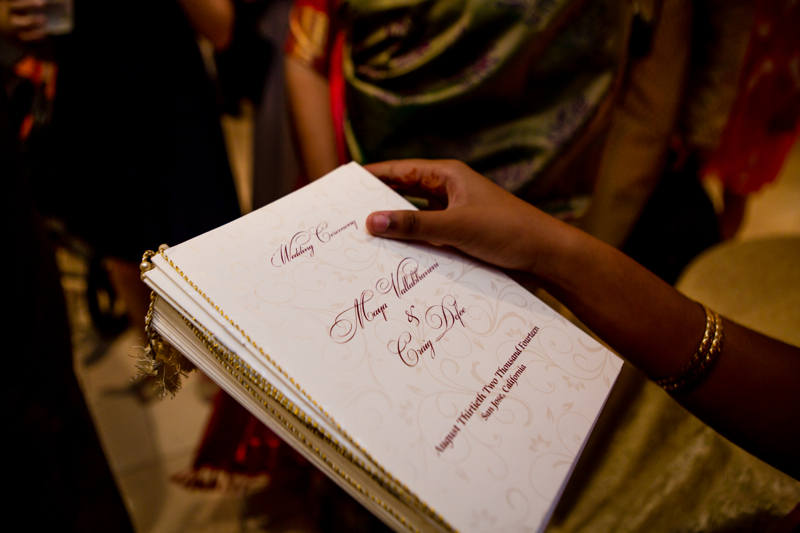 Wedding Ceremony
Maya Vallabhaneni
&
Craig Defoe
August Thirtieth Two Thousand Fourteen
San Jose, California